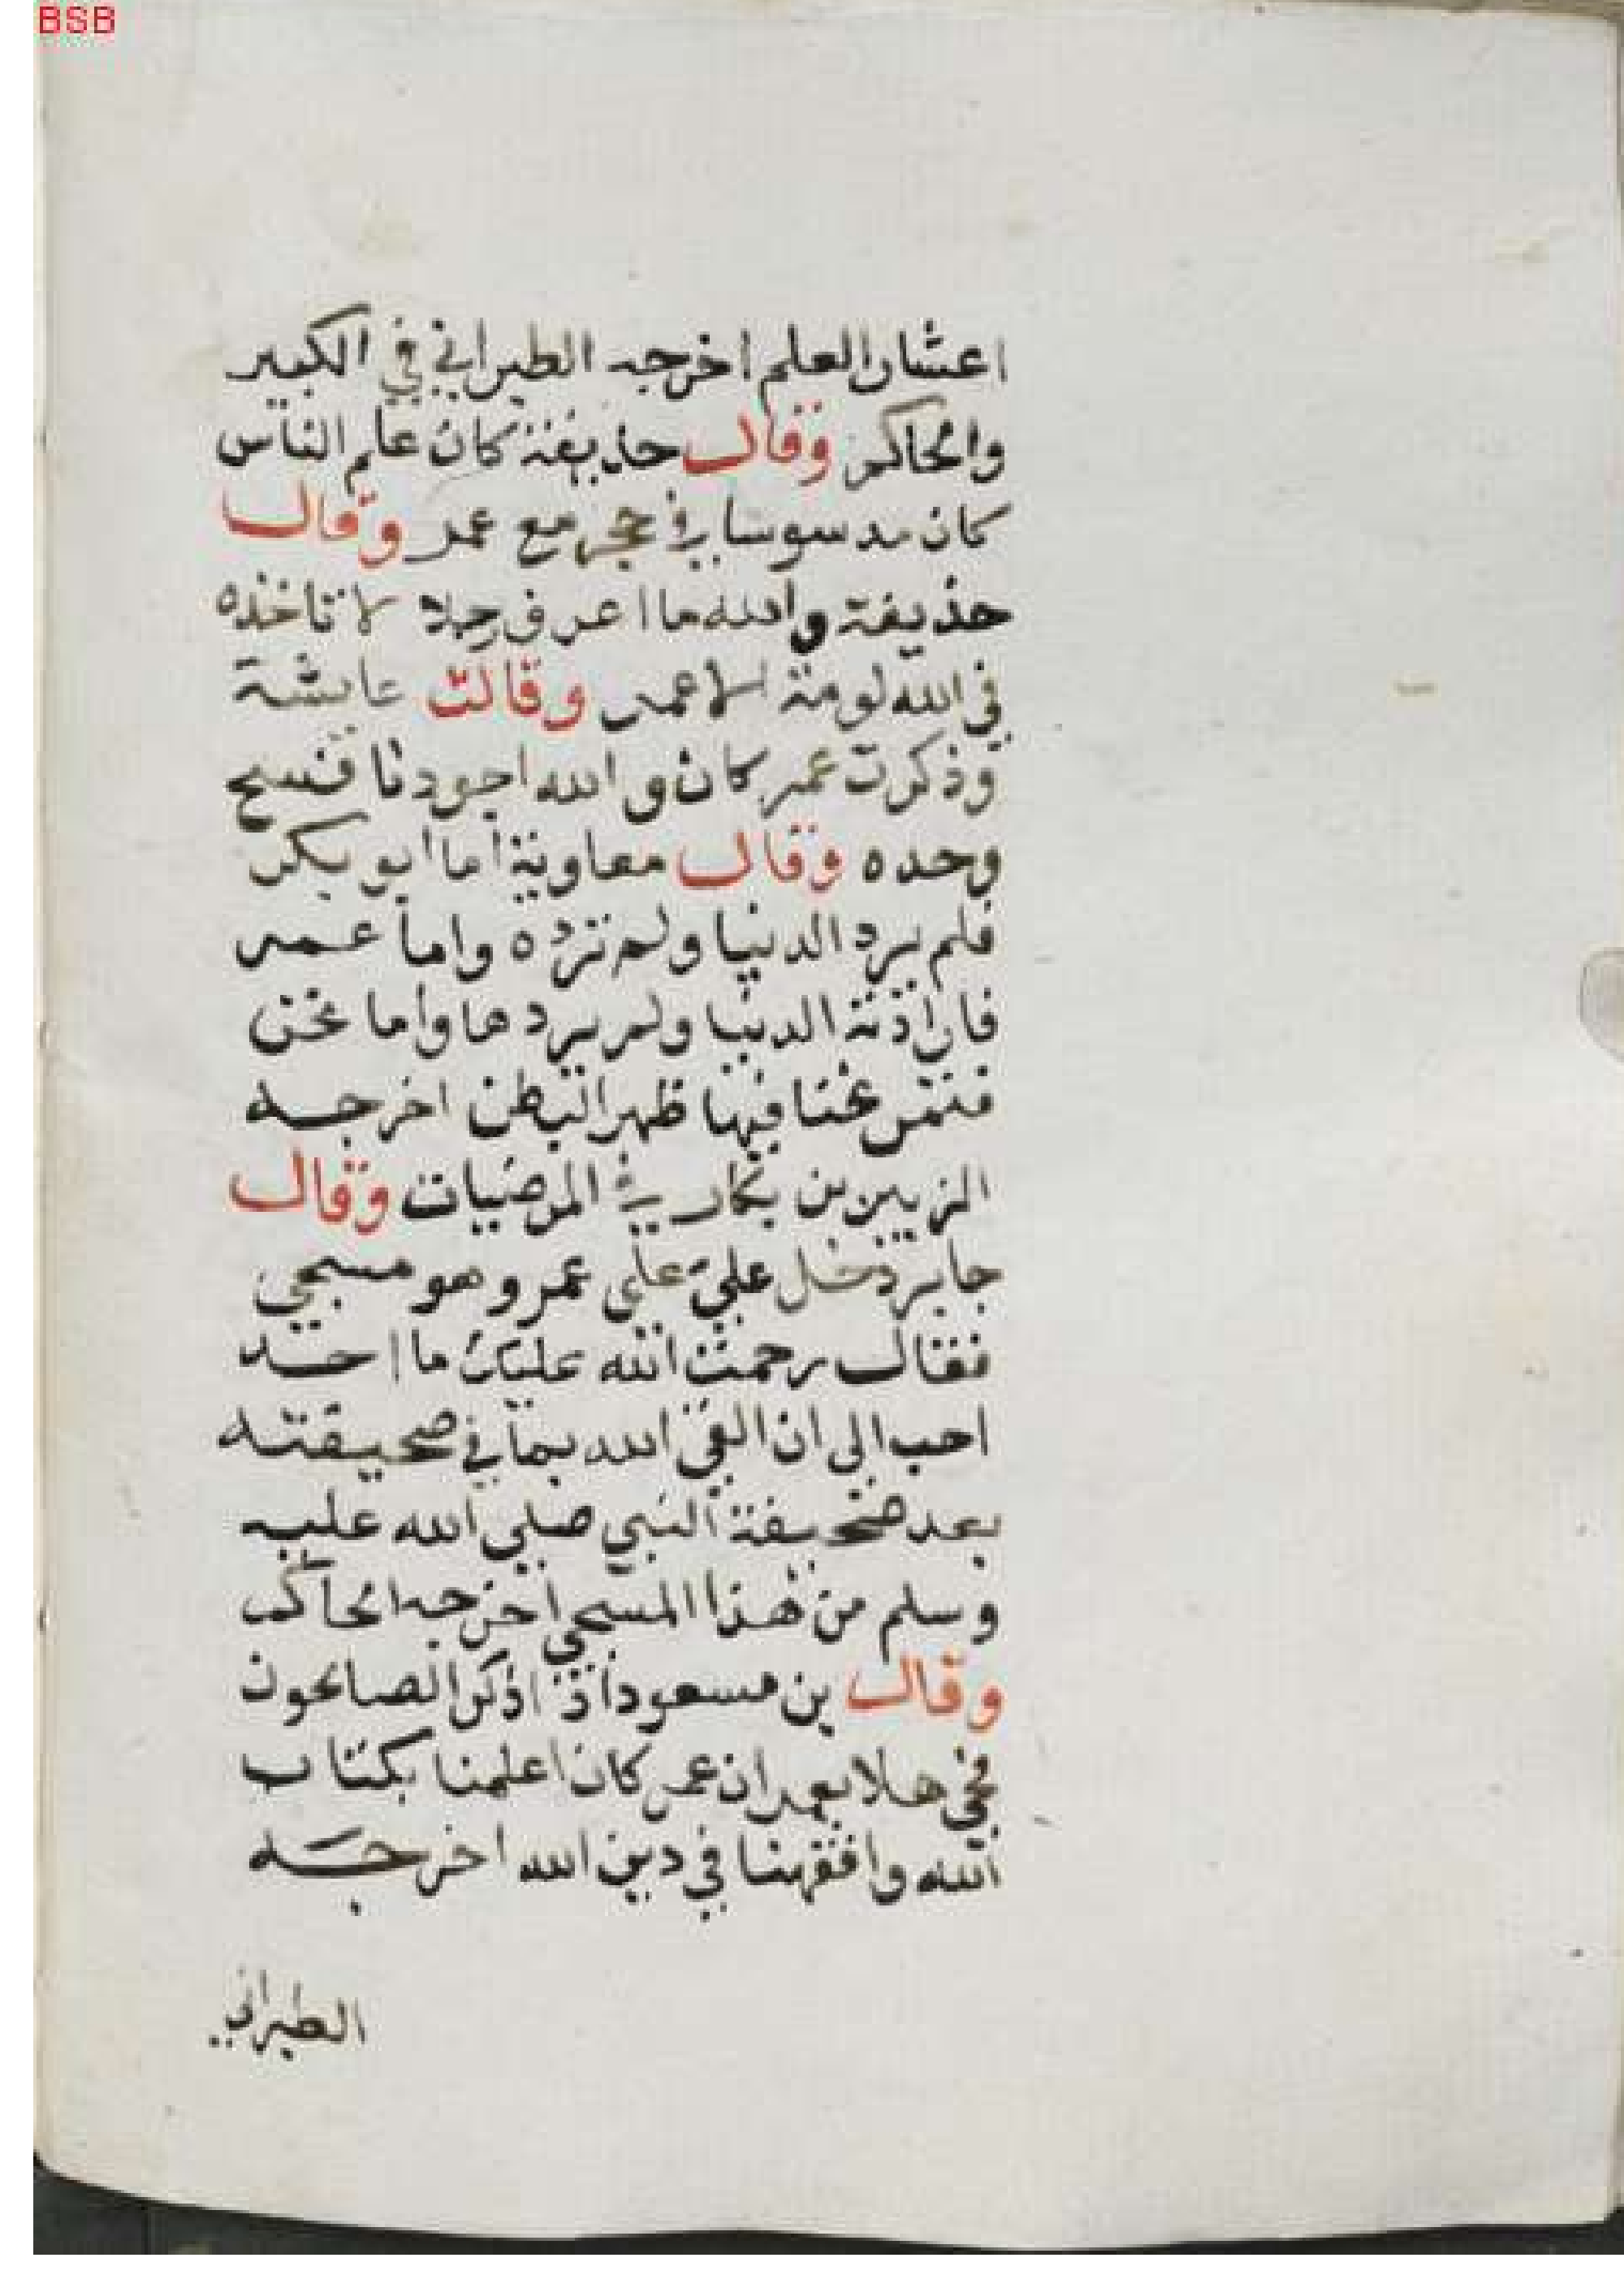 BSB
اعشار العلم اخرجه الطبراني في الكبير
والحاكم وقال حذيفة كان علم الناس
كان مدسوسا في حجر مع عمر وقال
حذيفة والله ما اعرف رجلا لا تاخذه
في الله لومة الا عمر وقالت عايشة
وذكرت عمر كان والله اجودنا فنسج
وحده وقال معاوية اما ابو بكر
فلم يرد الدنيا ولم ترده واما عمر
فارادته الدنيا ولم يردها واما نحن
فتمرغنا فيها ظهرا لبطن اخرجه
الزبير بن بكار في المرضيات وقال
جابر دخل علي على عمر وهو مسجي
فقال رحمت الله عليك ما احد
احب الى ان القي الله بما في صحيفته
بعد صحيفة النبي صلى الله عليه
وسلم من هذا المسجي اخرجه الحاكم
وقال بن مسعود اذا اذكر الصالحون
فحي هلا بعمر ان عمر كان اعلمنا بكتاب
الله وافقهنا في دين الله اخرجه
الطبراني